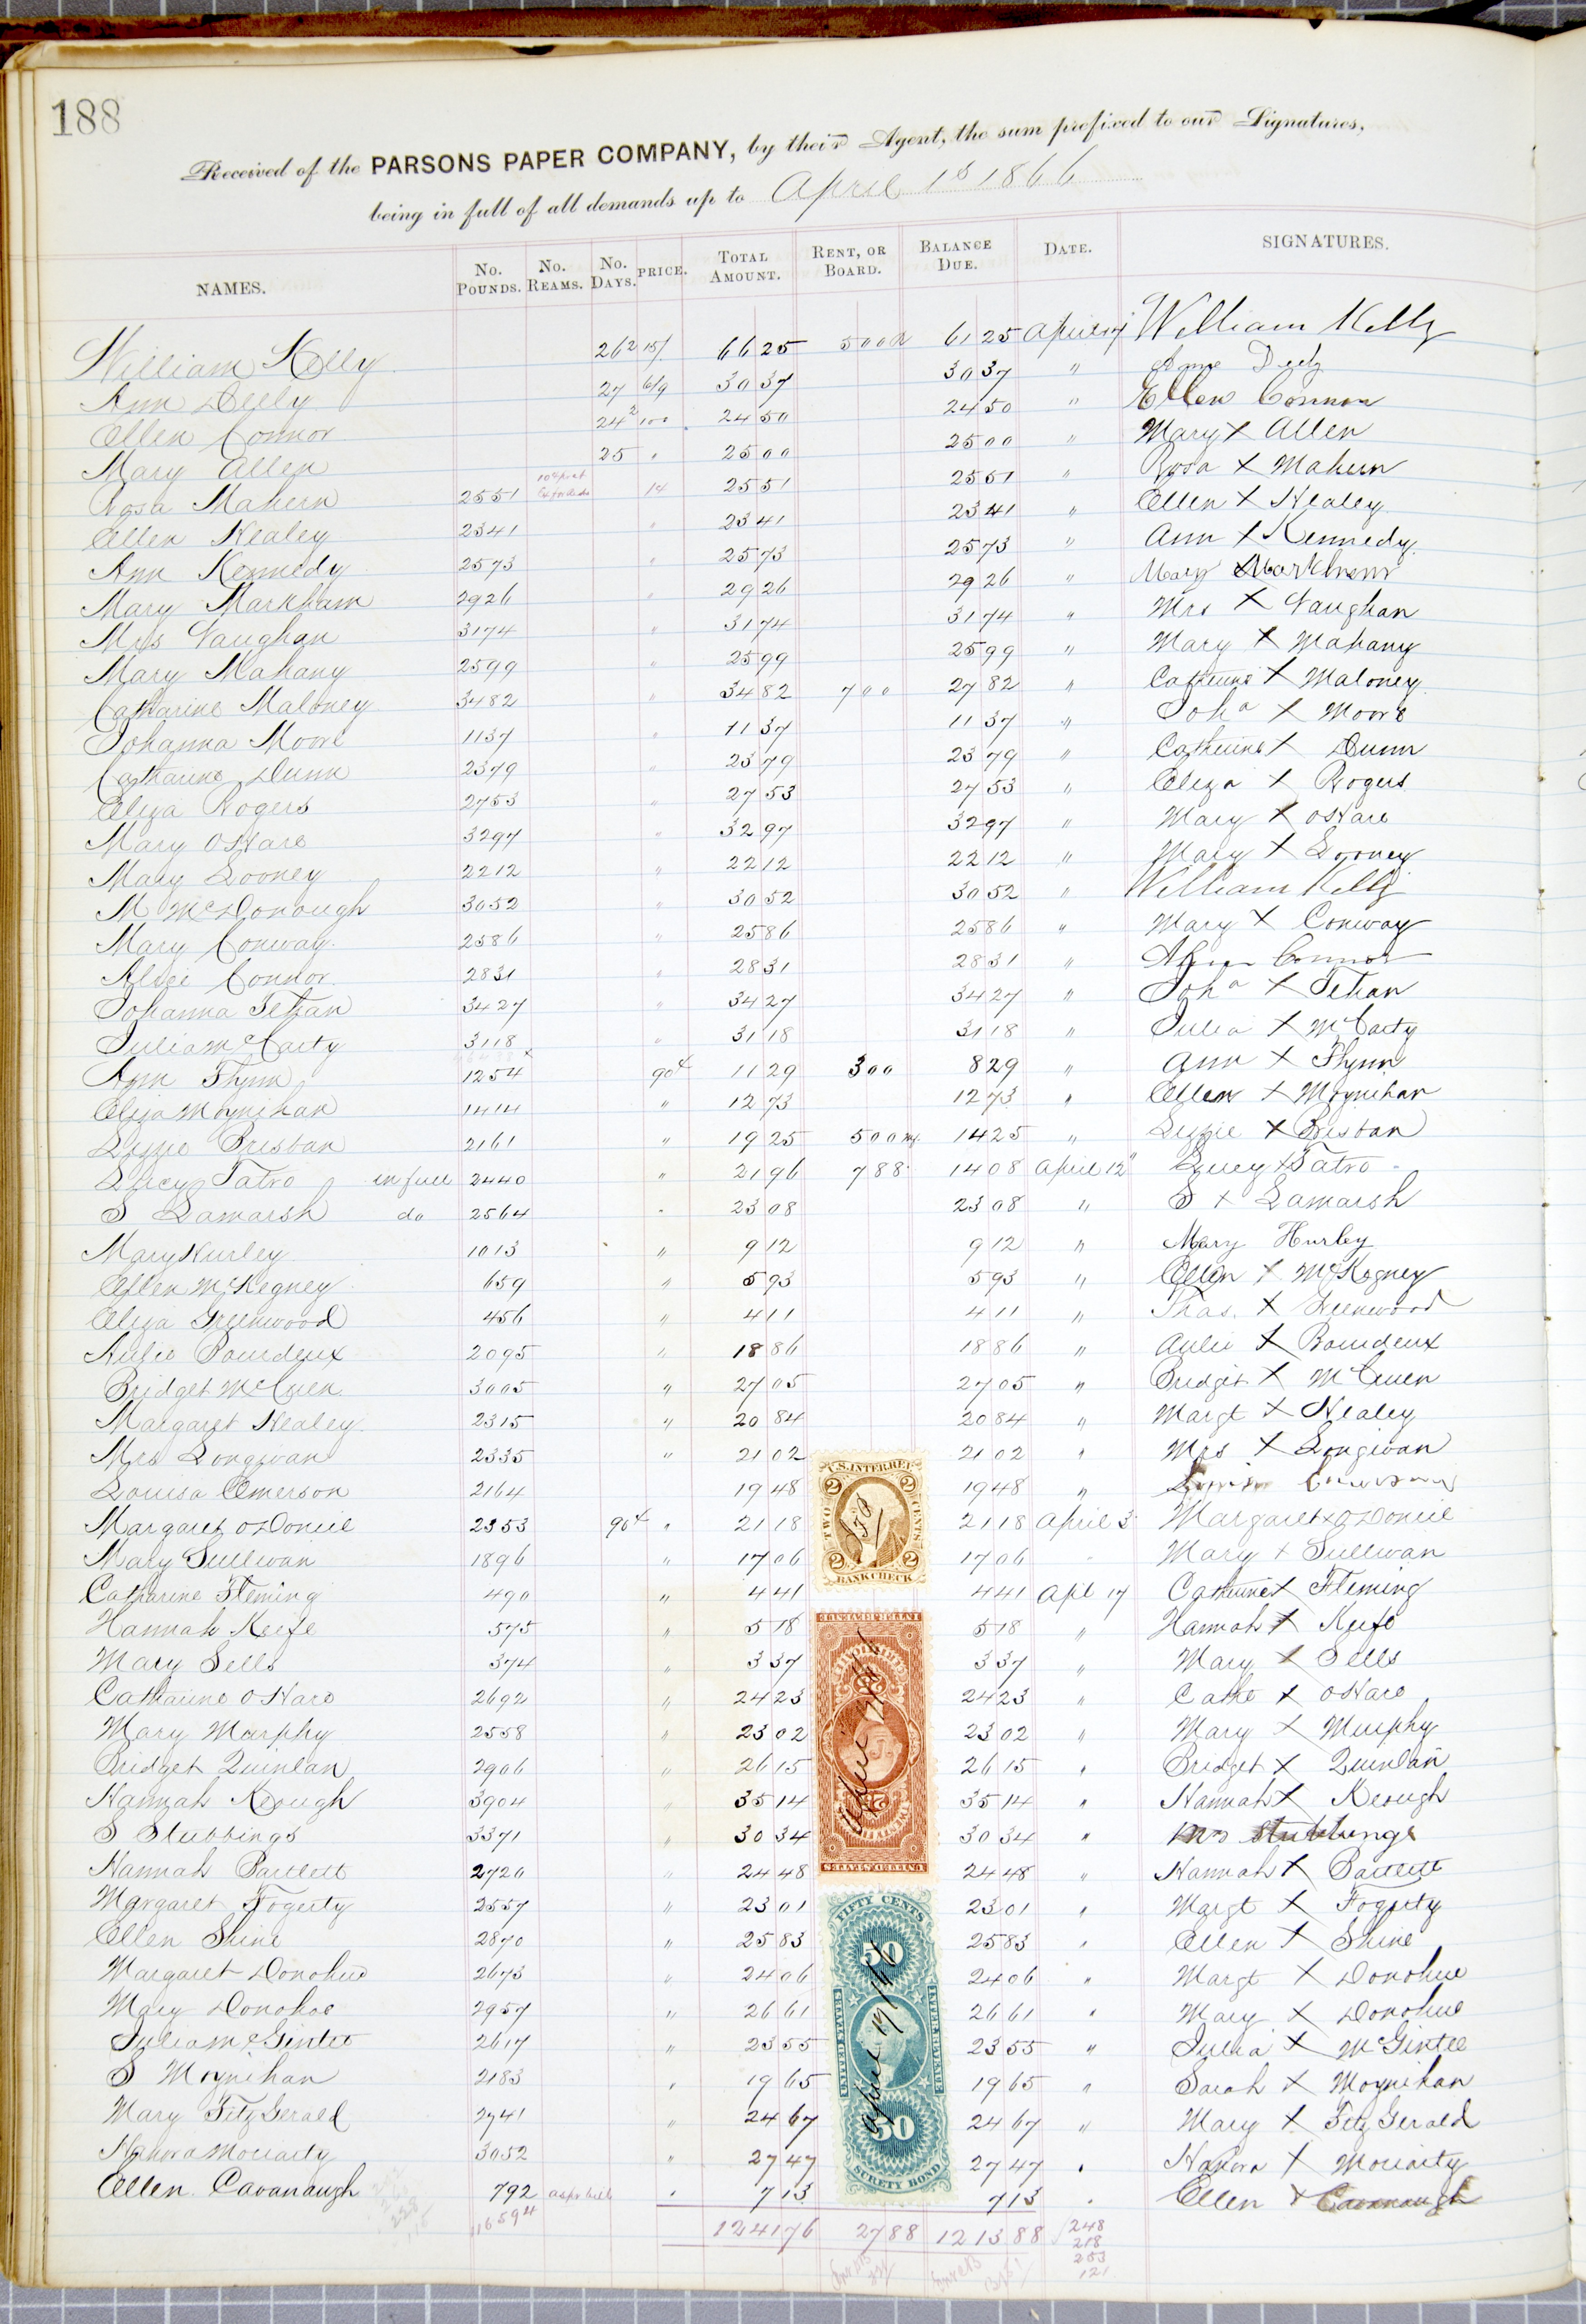 188
Received of the PARSONS PAPER COMPANY, by their Agent, the sum prefixed to our Signatures,
being in full of all demands up to April 1st 1866
NAMES. No. Pounds. No. Reams. No. Days. PRICE. Total Amount. Rent, or Board. Balance Due. Date. SIGNATURES.
William Kelly 26 2 15/ 66 25 5 00 61 25 April 17 William Kelly
Ann Deely 27 6/9 30 37 30 37 "
Ellen Connor 24 2 100 24 50 24 50 " Ellen Connor
Mary Allen 25 " 25 00 25 00 " Mary X Allen
Rosa Mahern 2551 14 25 51 25 51 " Rosa X Mahern
Ellen Healey 2341 " 23 41 23 41 " Ellen X Healey
Ann Kennedy 2573 " 25 73 25 73 " Ann X Kennedy
Mary Markham 2926 " 29 26 29 26 " Mary Markham
Mrs Vaughan 3174 " 31 74 31 74 " Mrs X Vaughan
Mary Mahany 2599 " 25 99 25 99 " Mary X Mahany
Catharine Maloney 3482 " 34 82 7 00 27 82 " Catherine X Maloney
Johanna Moore 1137 " 11 37 11 37 " Joha X Moore
Catharine Dunn 2379 " 23 79 23 79 " Catherine X Dunn
Eliza Rogers 2753 " 27 53 27 53 " Eliza X Rogers
Mary OHare 3297 " 32 97 32 97 " Mary X OHare
Mary Looney 2212 " 22 12 22 12 " Mary X Looney
M McDonough 3052 " 30 52 30 52 " William Kelly
Mary Conway 2586 " 25 86 25 86 " Mary X Conway
Alice Connor 2831 " 28 31 28 31 " Connor
Johanna Tehan 3427 " 34 27 34 27 " Joha X Tehan
Julia McCarty 3118 " 31 18 31 18 " Julia X McCarty
Ann Flynn 1254 90c 11 29 3 00 8 29 " Ann X Flynn
Eliza Moynihan 1414 " 12 73 12 73 " Ellen X Moynihan
Lizzie Brisban 2161 " 19 25 5 00 14 25 " Lizzie X Brisban
Lucy Tatro in full 2440 " 21 96 7 88 14 08 April 12" Lucy X Tatro
S Lamarsh do 2564 " 23 08 23 08 " S X Lamarsh
Mary Hurley 1013 " 9 12 9 12 " Mary Hurley
Ellen McKegney 659 " 5 93 5 93 " Ellen X McKegney
Eliza Greenwood 456 " 4 11 4 11 " Thos. X Greenwood
Aulie Bourdeux 2095 " 18 86 18 86 " Aulie X Bourdeux
Bridget McCuen 3005 " 27 05 27 05 " Bridget X McCuen
Margaret Healey 2315 " 20 84 20 84 " Margt X Healey
Mrs Longivan 2335 " 21 02 21 02 " Mrs X Longivan
Louisa Emerson 2164 19 48 19 48 " Louisa Emerson
Margaret ODoniel 2353 90c " 21 18 21 18 April 3 Margaret X ODoniel
Mary Sullivan 1896 " 17 06 17 06 " Mary X Sullivan
Catharine Fleming 490 " 4 41 4 41 Apl 17 Catherine X Fleming
Hannah Keefe 575 " 5 18 5 18 " Hannah X Keefe
Mary Sells 374 " 3 37 3 37 " Mary X Sells
Catharine OHare 2692 " 24 23 24 23 " Cathe X OHare
Mary Murphy 2558 " 23 02 23 02 " Mary X Murphy
Bridget Quinlan 2906 " 26 15 26 15 " Bridget X Quinlan
Hannah Keough 3904 " 35 14 35 14 " Hannah X Keough
S Stubbings 3371 " 30 34 30 34 " Mrs Stubbings
Hannah Bartlett 2720 " 24 48 24 48 " Hannah X Bartlett
Margaret Fogerty 2557 " 23 01 23 01 " Margt X Fogerty
Ellen Shine 2870 " 25 83 25 83 " Ellen X Shine
Margaret Donohue 2673 " 24 06 24 06 " Margt X Donohue
Mary Donohoe 2957 " 26 61 26 61 " Mary X Donohue
Julia McGintee 2617 " 23 55 23 55 " Julia X McGintee
S Moynihan 2183 " 19 65 19 65 " Sarah X Moynihan
Mary FitzGerald 2741 " 24 67 24 67 " Mary X FitzGerald
Hanora Moriarty 3052 " 27 47 27 47 " Hanora X Moriarty
Ellen Cavanaugh 792 " 7 13 7 13 " Ellen X Cavanaugh
116594 1241 76 27 88 1213 88 248
218
253
121
U.S. INTER. REV.
2 2
TWO CENTS
2 2
BANK CHECK
INTER. REVENUE
25
April
UNITED STATES
FIFTY CENTS
50
UNITED STATES
INTER. REVENUE
April 17/66
50
SURETY BOND